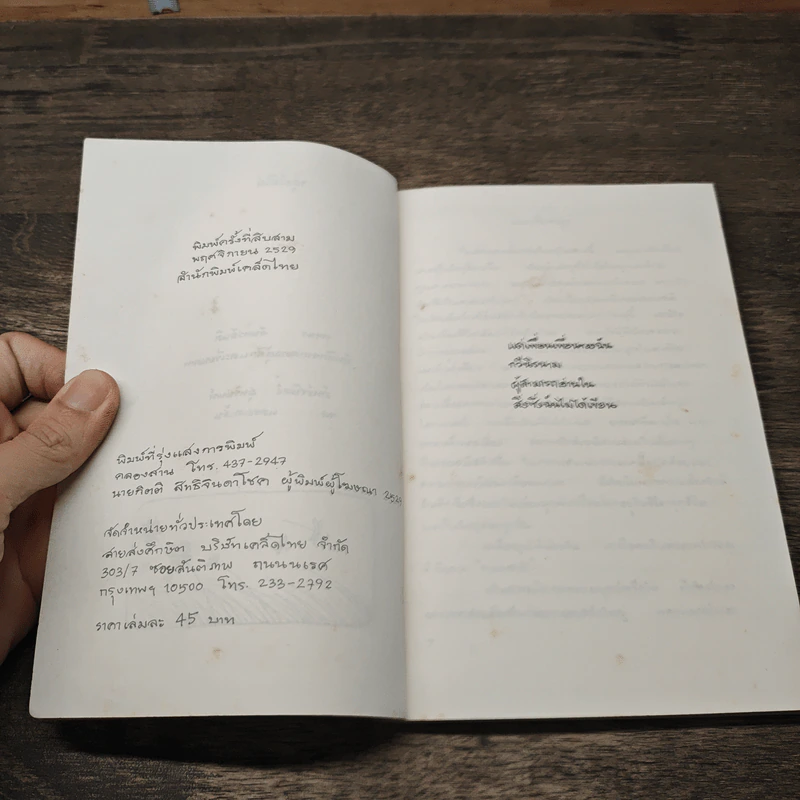 พิมพ์ครั้งที่สิบสาม
พฤศจิกายน 2529
สำนักพิมพ์เคล็ดไทย
พิมพ์ที่รุ่งแสงการพิมพ์
คลองสาน โทร. 437-2947
นายกิตติ สิทธิจินดาโชค ผู้พิมพ์ผู้โฆษณา 2529
จัดจำหน่ายทั่วประเทศโดย
สายส่งศึกษิต บริษัทเคล็ดไทย จำกัด
303/7 ซอยสันติภาพ ถนนนเรศ
กรุงเทพฯ 10500 โทร. 233-2792
ราคาเล่มละ 45 บาท
แด่เพื่อนเพื่อนของฉัน
กวีนิรนาม
ผู้สามารถอ่านใน
สิ่งที่ฉันไม่ได้เขียน